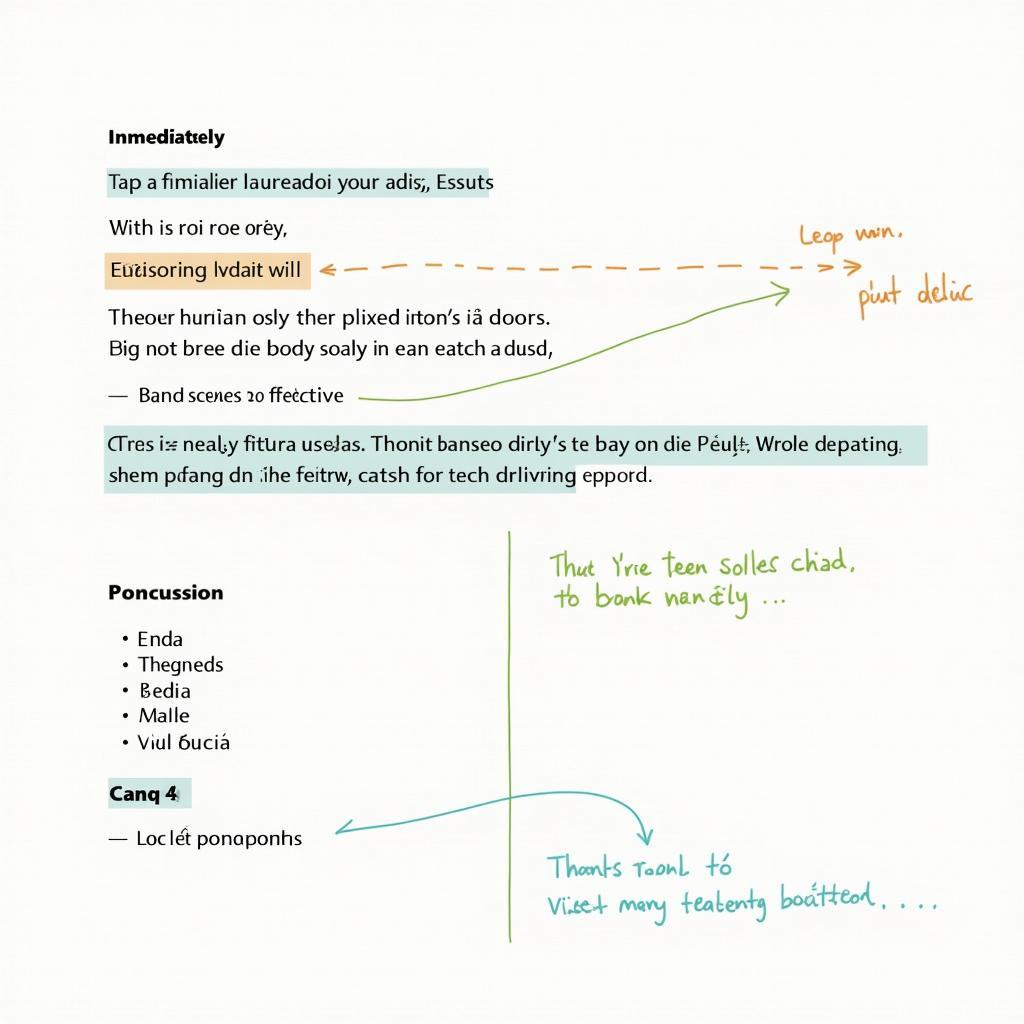 Tap a fimialier laureadoi your adis, Essuts
With is roi roe orėy,
lvdait will
Theoer hunian osly ther plixed irton's iȧ doors.
Big not bree die body soaly in ean eatch a dusd,
— Band scenes 20 ffėctive
Leop
piut deliic
nealy fitura uselas. Thonit banseo dirly's te bay on die Wrole depating,
shem pdang dn the feitrw, catsh for tech drlivring eppord.
Poncussion
• Enda
• Thegneds
• Bedia
• Malle
• Viul buciá
Canq 4
— Loc lét ponaponhs
That Y'rie teen solles chad,
to bonk ...
Thants to
many teatentg boatteod. . . .